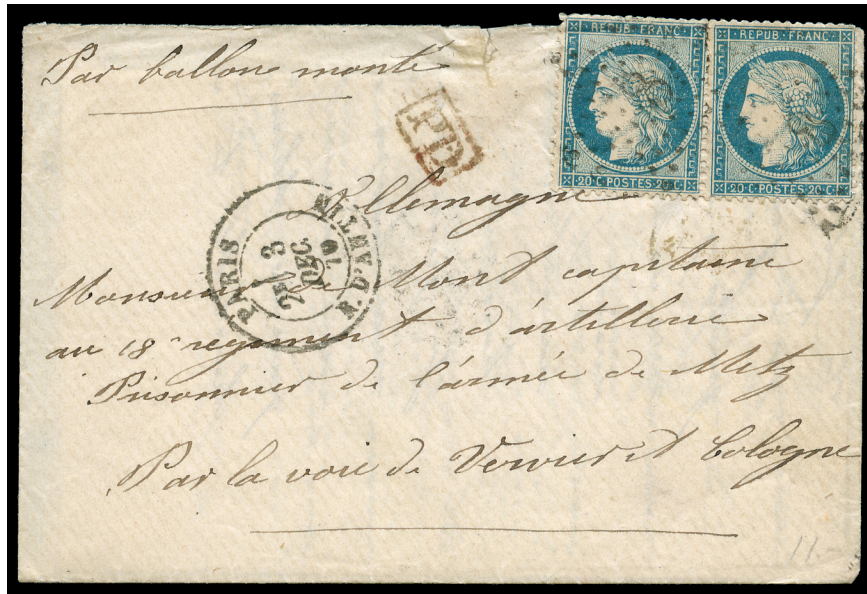 Par ballon monté
REPUB·FRANC·
20·C·POSTES·20·C·
REPUB·FRANC·
20·C·POSTES·20·C·
PD
PARIS
R. D'ANTIN
3
DEC.
70
Allemagne
Monsieur de Mont capitaine
au 18e regiment d'artillerie
Prisonnier de l'armée de Metz
Par la voie de Vervier et Cologne
11.-